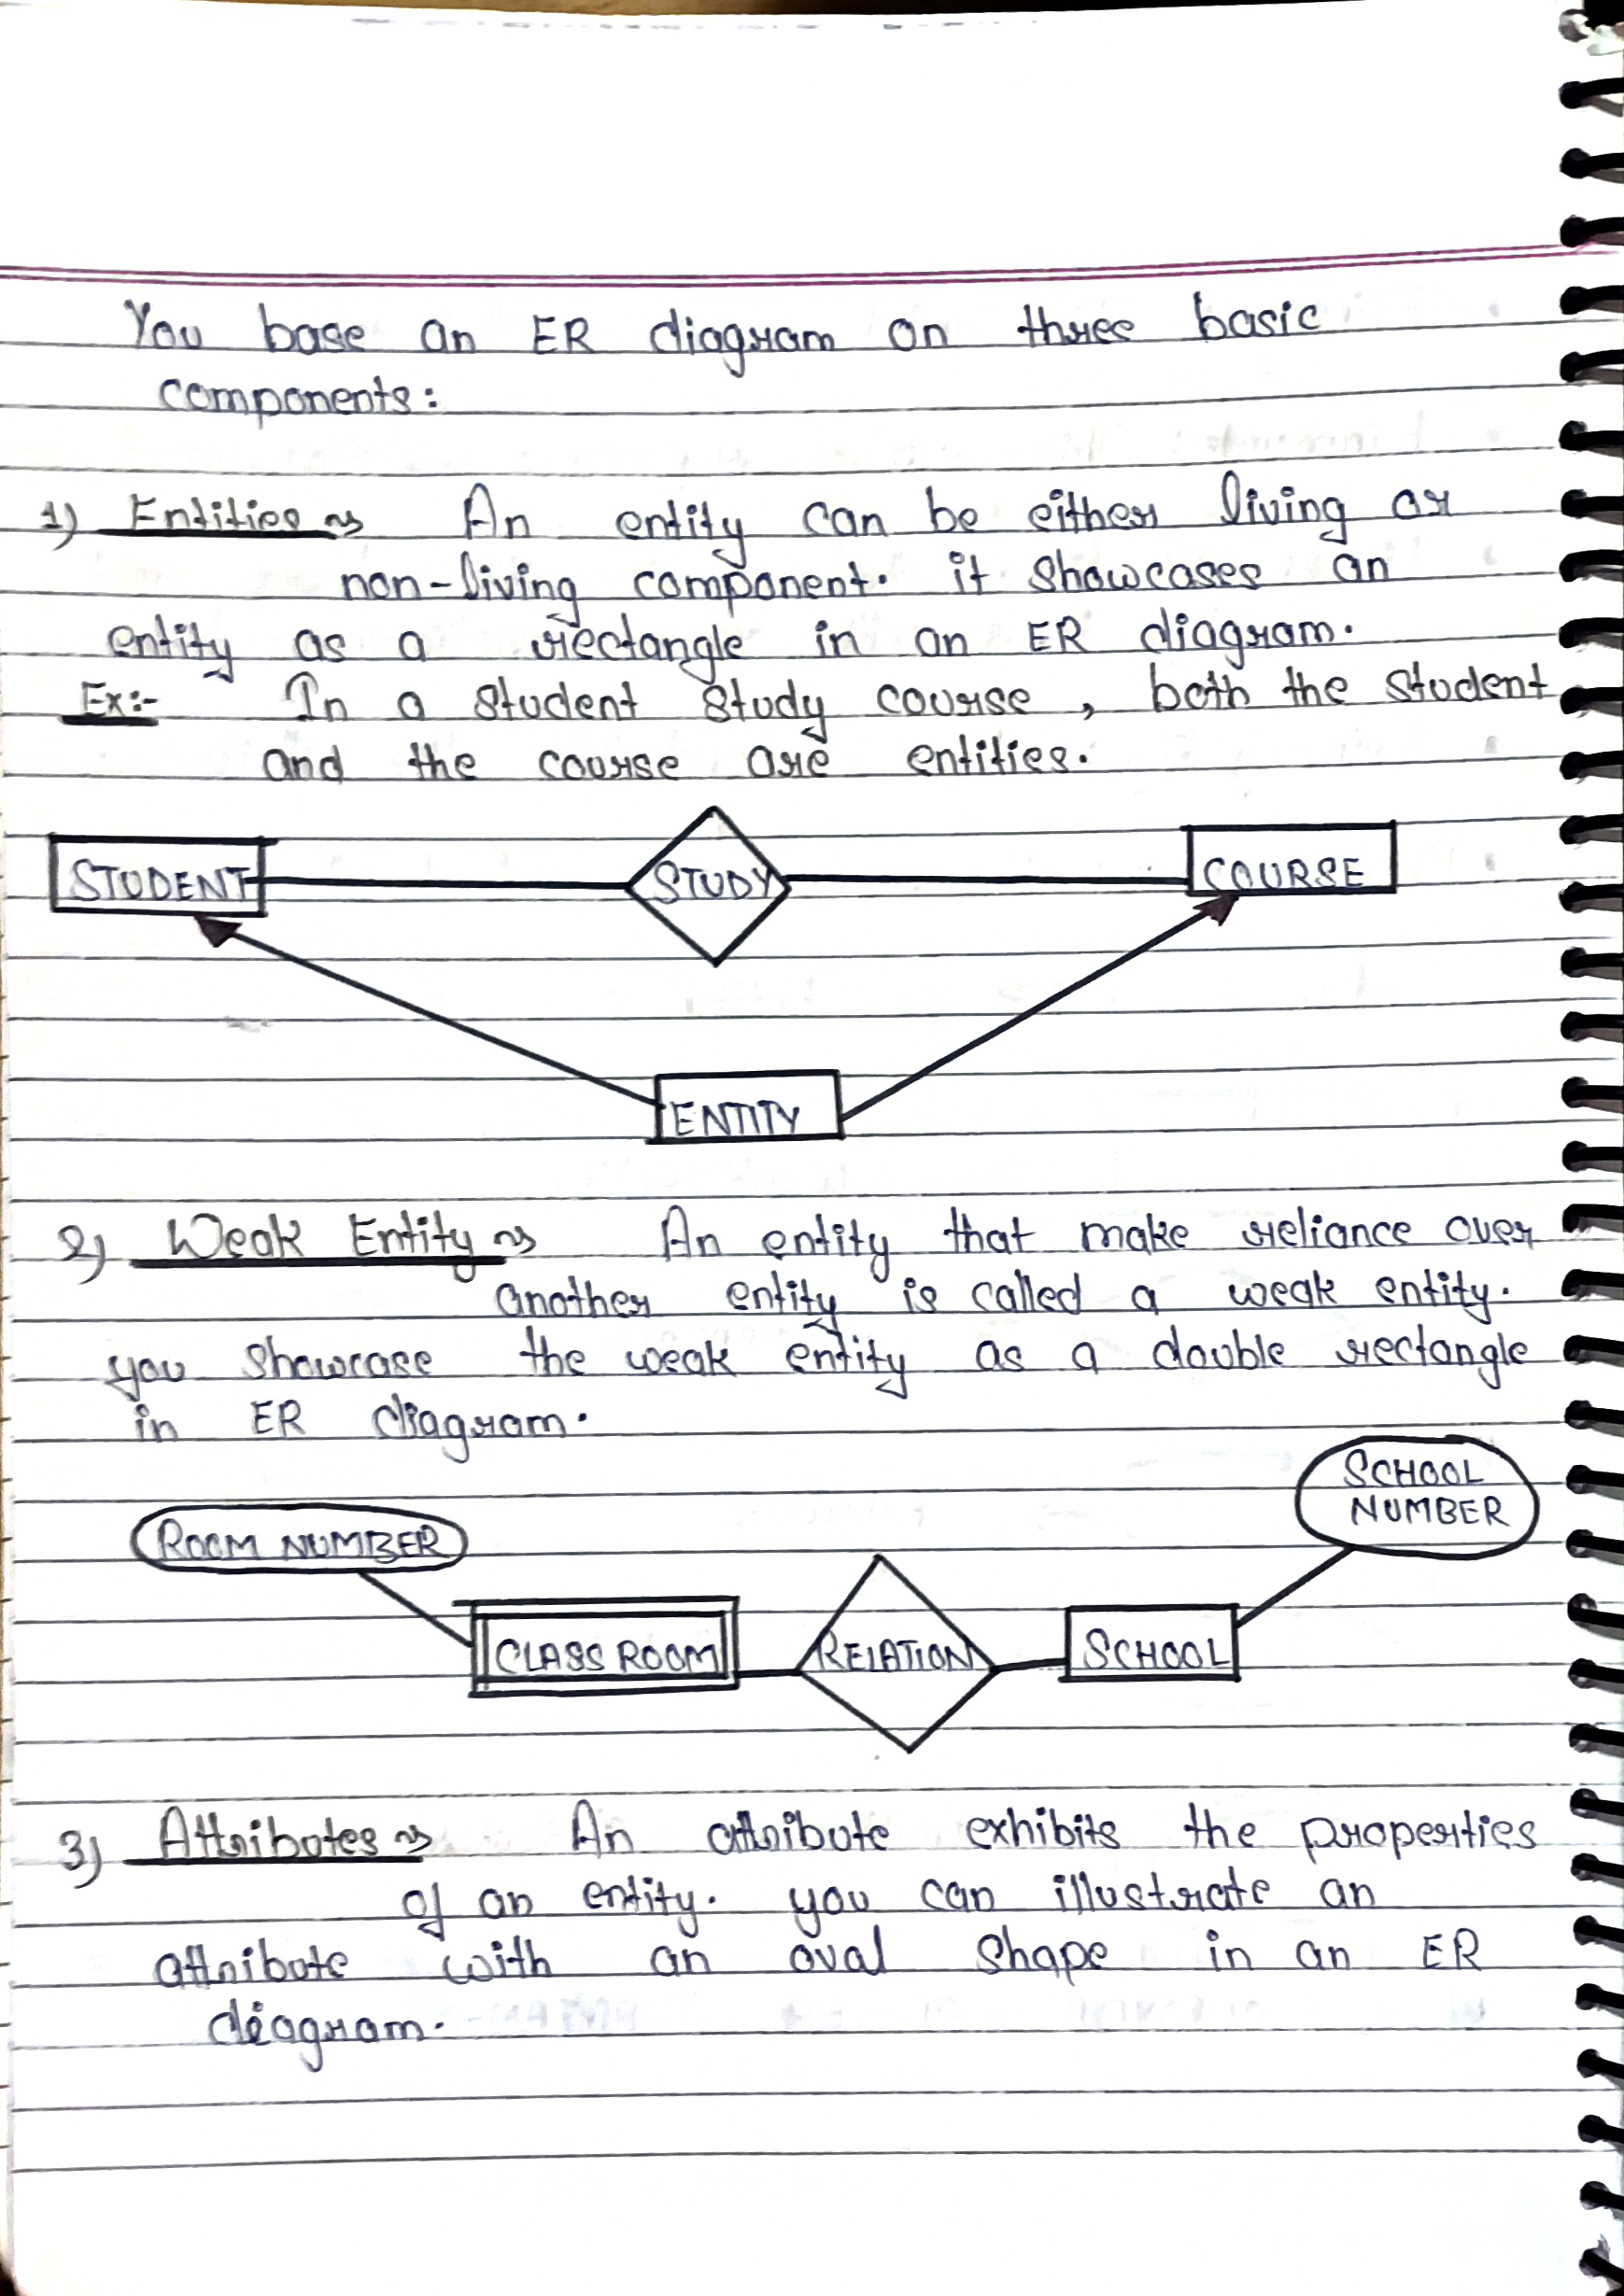 You base an ER diagram on three basic
components:
1) Entities ~> An entity can be either living or
non-living component. it showcases an
entity as a rectangle in an ER diagram.
Ex:- In a student study course, both the student
and the course are entities.
STUDENT STUDY COURSE
ENTITY
2) Weak Entity ~> An entity that make reliance over
another entity is called a weak entity.
you showcase the weak entity as a double rectangle
in ER diagram.
SCHOOL
NUMBER
ROOM NUMBER
CLASS ROOM RELATION SCHOOL
3) Attributes ~> An attribute exhibits the properties
of an entity. you can illustrate an
attribute with an oval shape in an ER
diagram.